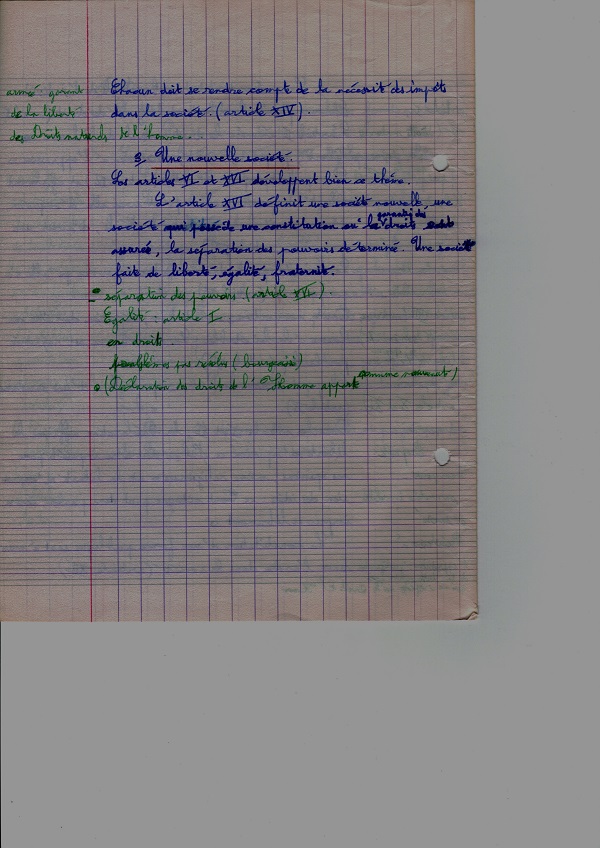 armé garant
de la liberté
des Droits naturels de l'homme.
Chacun doit se rendre compte de la nécessité des impôts
dans la société. (article XIV).
3. Une nouvelle société.
Les articles VI et XVI développent bien ce thème.
L'article XVI définit une société nouvelle, une
garantie des
société qui possède une constitution où la droits est
assurée, la séparation des pouvoirs déterminé. Une société
faite de liberté, égalité, fraternité.
séparation des pouvoirs (article XVI).
Egalité : article I
en droit
problèmes pas résolus (bourgeoisie)
(Déclaration des droits de l'Homme apporte comme nouveauté)